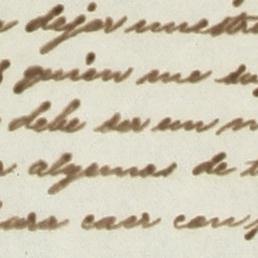 dejar nuestr
quien me su
debe ser un n
algunos de t
para caer con